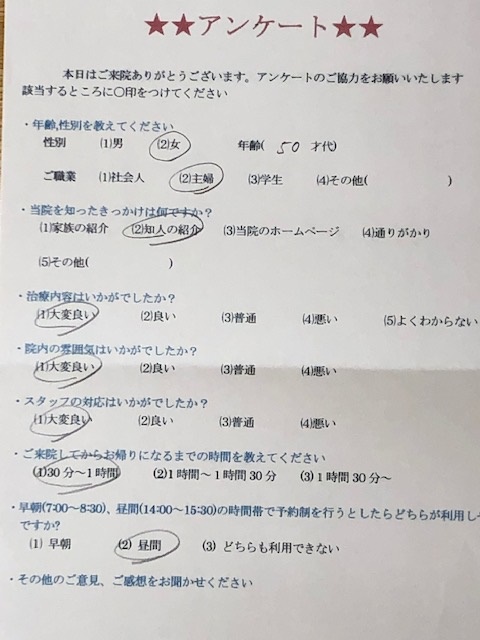 ★★アンケート★★
本日はご来院ありがとうございます。アンケートのご協力をお願いいたします
該当するところに○印をつけてください
・年齢,性別を教えてください
性別 (1)男 (2)女 年齢( 50 才代)
ご職業 (1)社会人 (2)主婦 (3)学生 (4)その他( )
・当院を知ったきっかけは何ですか？
(1)家族の紹介 (2)知人の紹介 (3)当院のホームページ (4)通りがかり
(5)その他( )
・治療内容はいかがでしたか？
(1)大変良い (2)良い (3)普通 (4)悪い (5)よくわからない
・院内の雰囲気はいかがでしたか？
(1)大変良い (2)良い (3)普通 (4)悪い
・スタッフの対応はいかがでしたか？
(1)大変良い (2)良い (3)普通 (4)悪い
・ご来院してからお帰りになるまでの時間を教えてください
(1)30分〜1時間 (2)1時間〜1時間30分 (3)1時間30分〜
・早朝(7:00〜8:30)、昼間(14:00〜15:30)の時間帯で予約制を行うとしたらどちらが利用し
ですか?
(1) 早朝 (2) 昼間 (3) どちらも利用できない
・その他のご意見、ご感想をお聞かせください